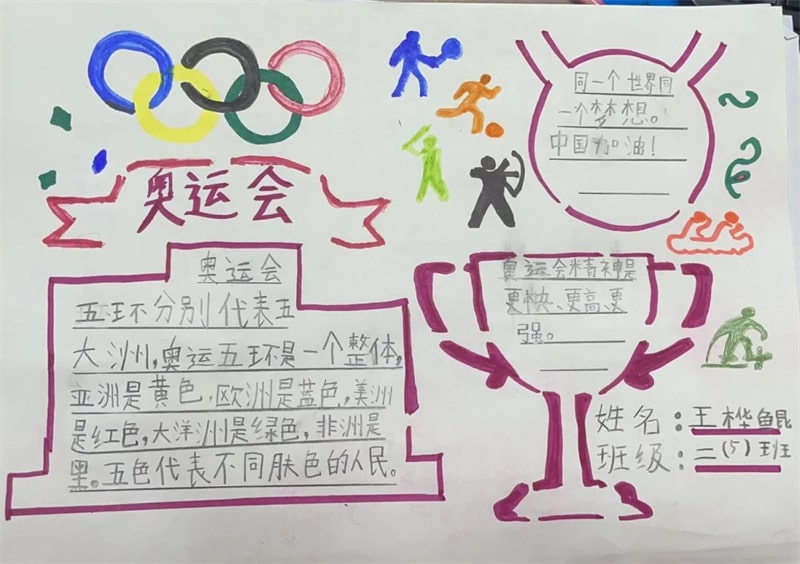 奥运会
同一个世界同
一个梦想。
中国加油!
奥运会
五环不分别代表五
大洲,奥运五环是一个整体,
亚洲是黄色,欧洲是蓝色,美洲
是红色,大洋洲是绿色,非洲是
黑。五色代表不同肤色的人民。
奥运会精神是
更快、更高、更
强。
姓名:王桦鲲
班级:二(5)班